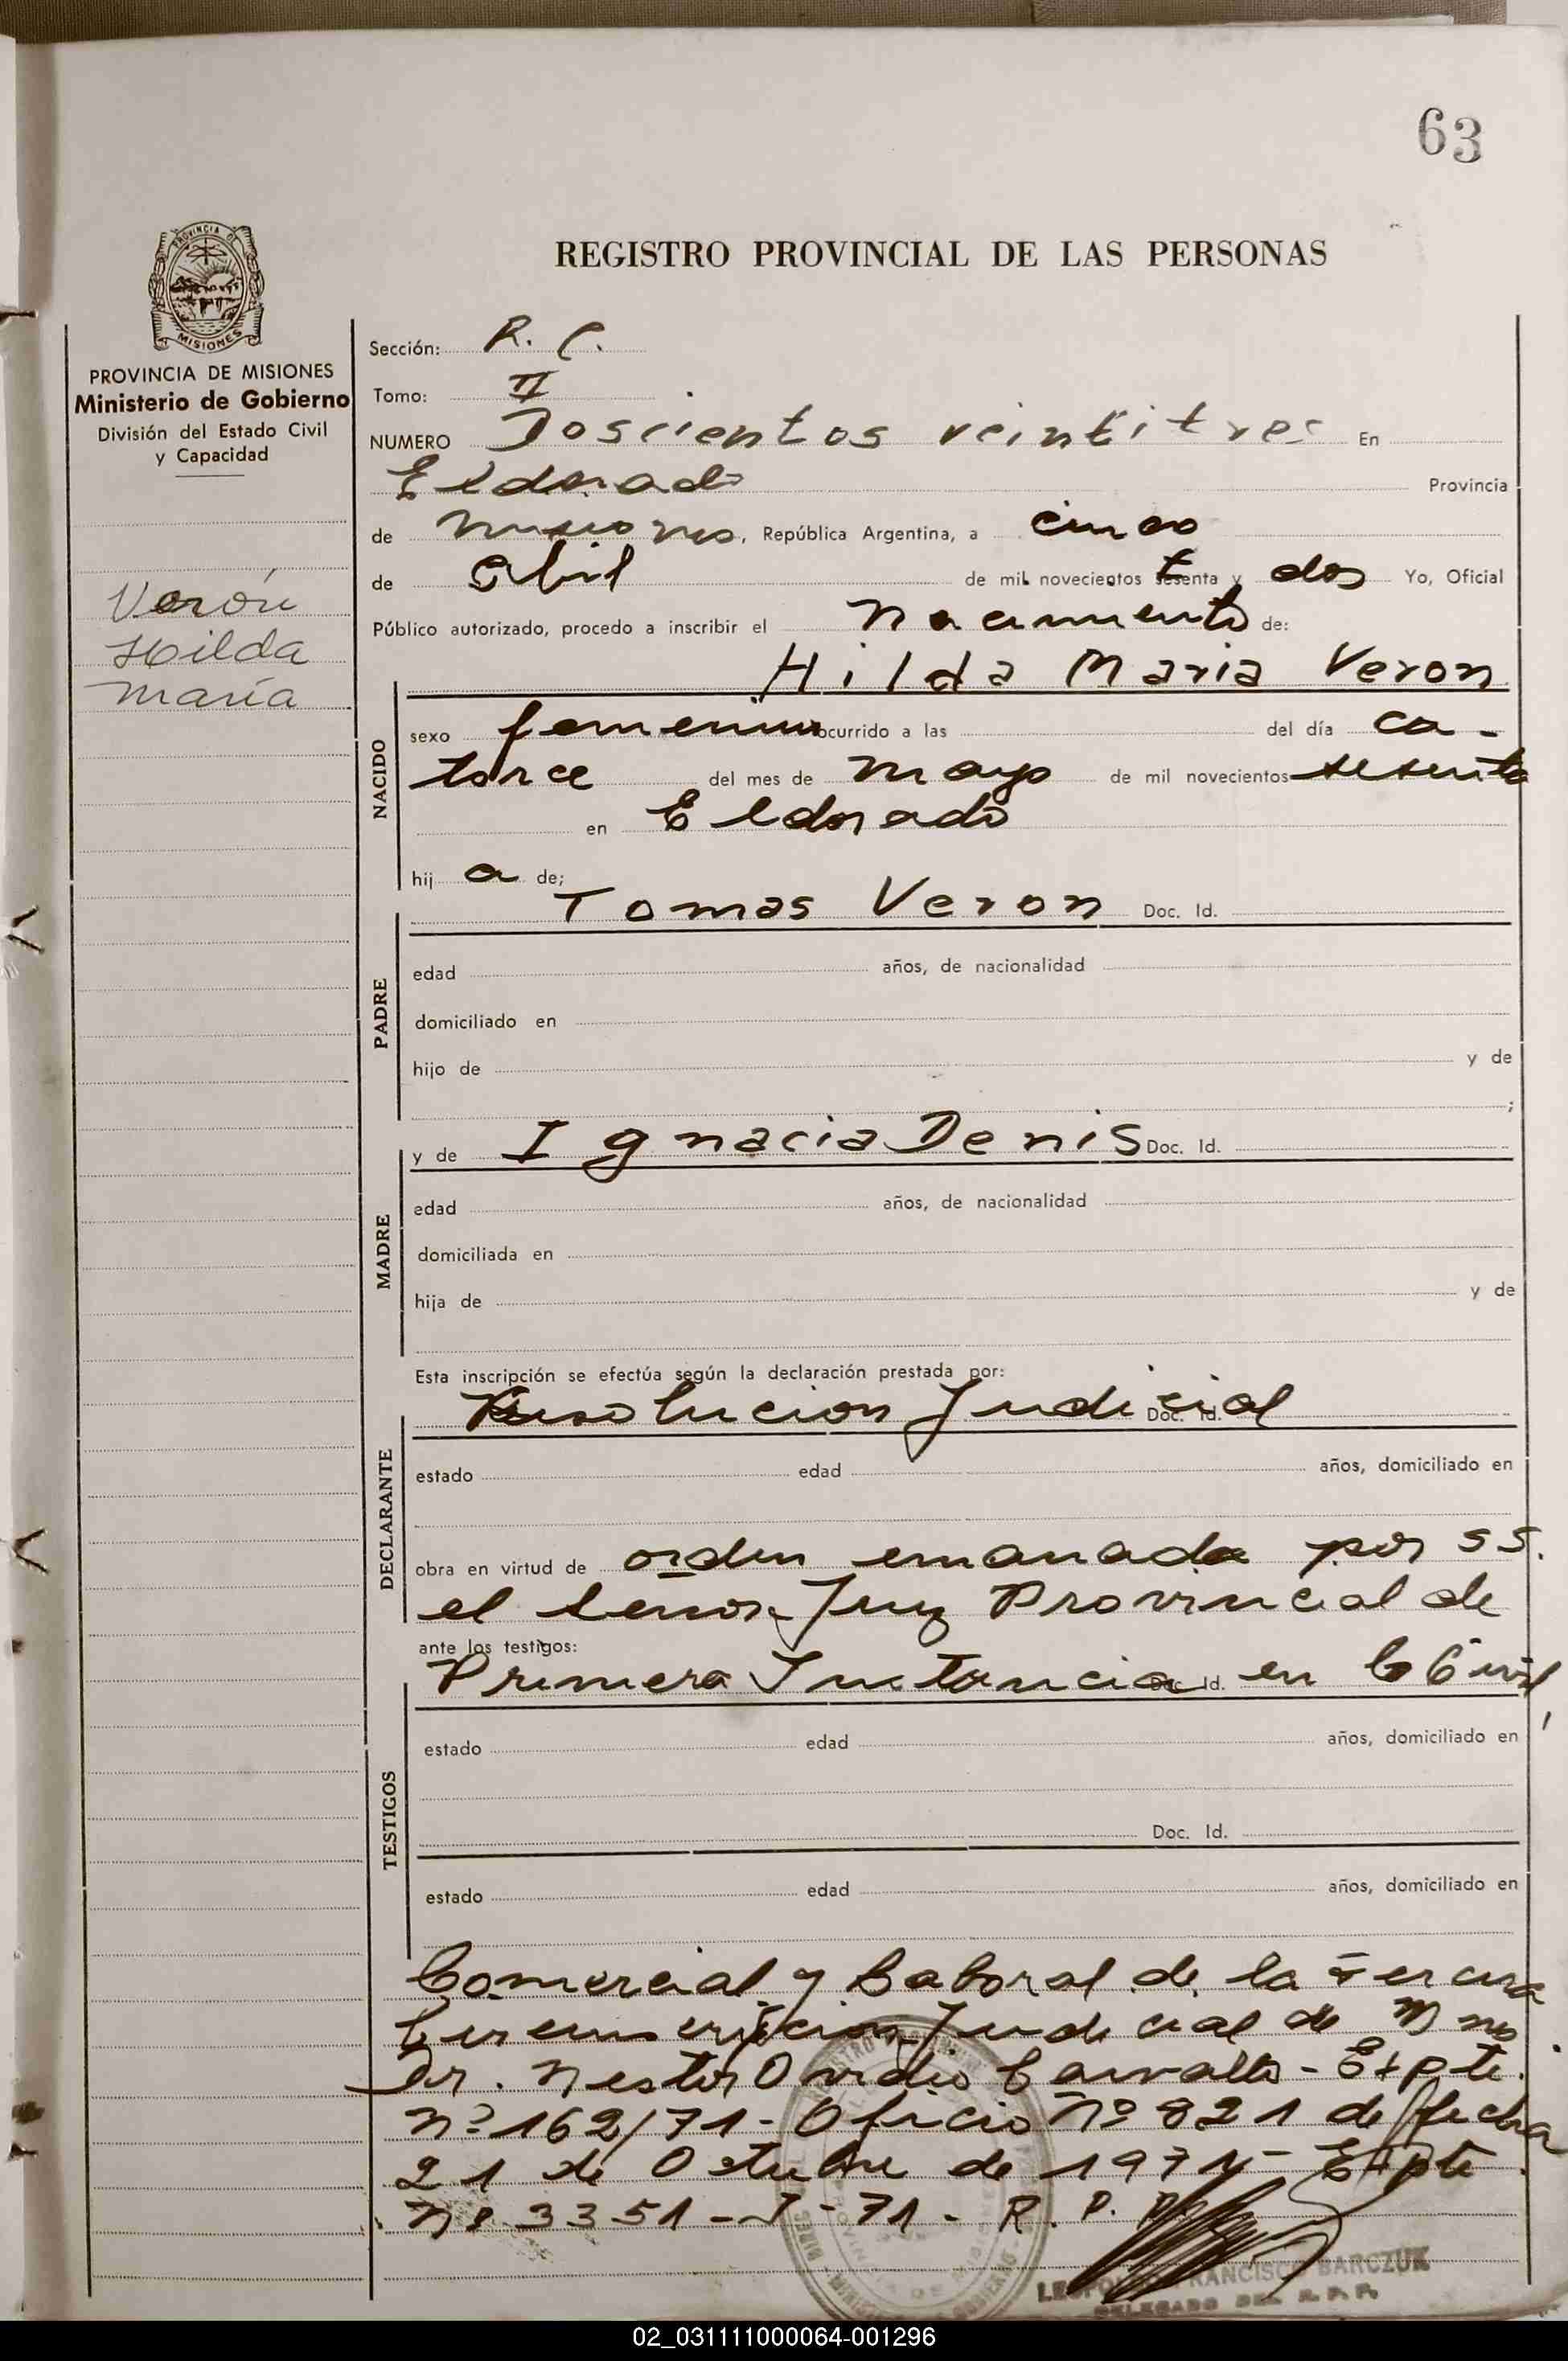 63
PROVINCIA DE
MISIONES
REGISTRO PROVINCIAL DE LAS PERSONAS
PROVINCIA DE MISIONES
Ministerio de Gobierno
División del Estado Civil
y Capacidad
Verón
Hilda
María
Sección: R. C.
Tomo: II
NUMERO Doscientos veintitres En
Eldorado Provincia
de Misiones, República Argentina, a cinco
de Abril de mil novecientos setenta y dos Yo, Oficial
Público autorizado, procedo a inscribir el Nacimiento de:
Hilda Maria Veron
NACIDO
sexo femenino ocurrido a las del día ca-
torce del mes de mayo de mil novecientos sesenta
en Eldorado
hija de;
Tomas Veron Doc. Id.
PADRE
edad años, de nacionalidad
domiciliado en
hijo de y de
;
y de Ignacia Denis Doc. Id.
MADRE
edad años, de nacionalidad
domiciliada en
hija de y de
Esta inscripción se efectúa según la declaración prestada por:
Resolucion Judicial Doc. Id.
DECLARANTE
estado edad años, domiciliado en
obra en virtud de orden emanada por S S.
el Señor Juez Provincial de
ante los testigos:
Primera Instancia en lo Civil, Doc. Id.
TESTIGOS
estado edad años, domiciliado en
Doc. Id.
estado edad años, domiciliado en
Comercial y Laboral de la Tercera
Circunscripcion Judicial de Mnes.
Dr. Nestor Ovidio - Expte.
Nº 162/71 - Oficio Nº 821 de fecha
21 de Octubre de 1971 - Expte
Nº 3351 - J - 71 - R. P. P.
FRANCISCO BARCZUK
DELEGADO DEL R. P. P.
02_031111000064-001296